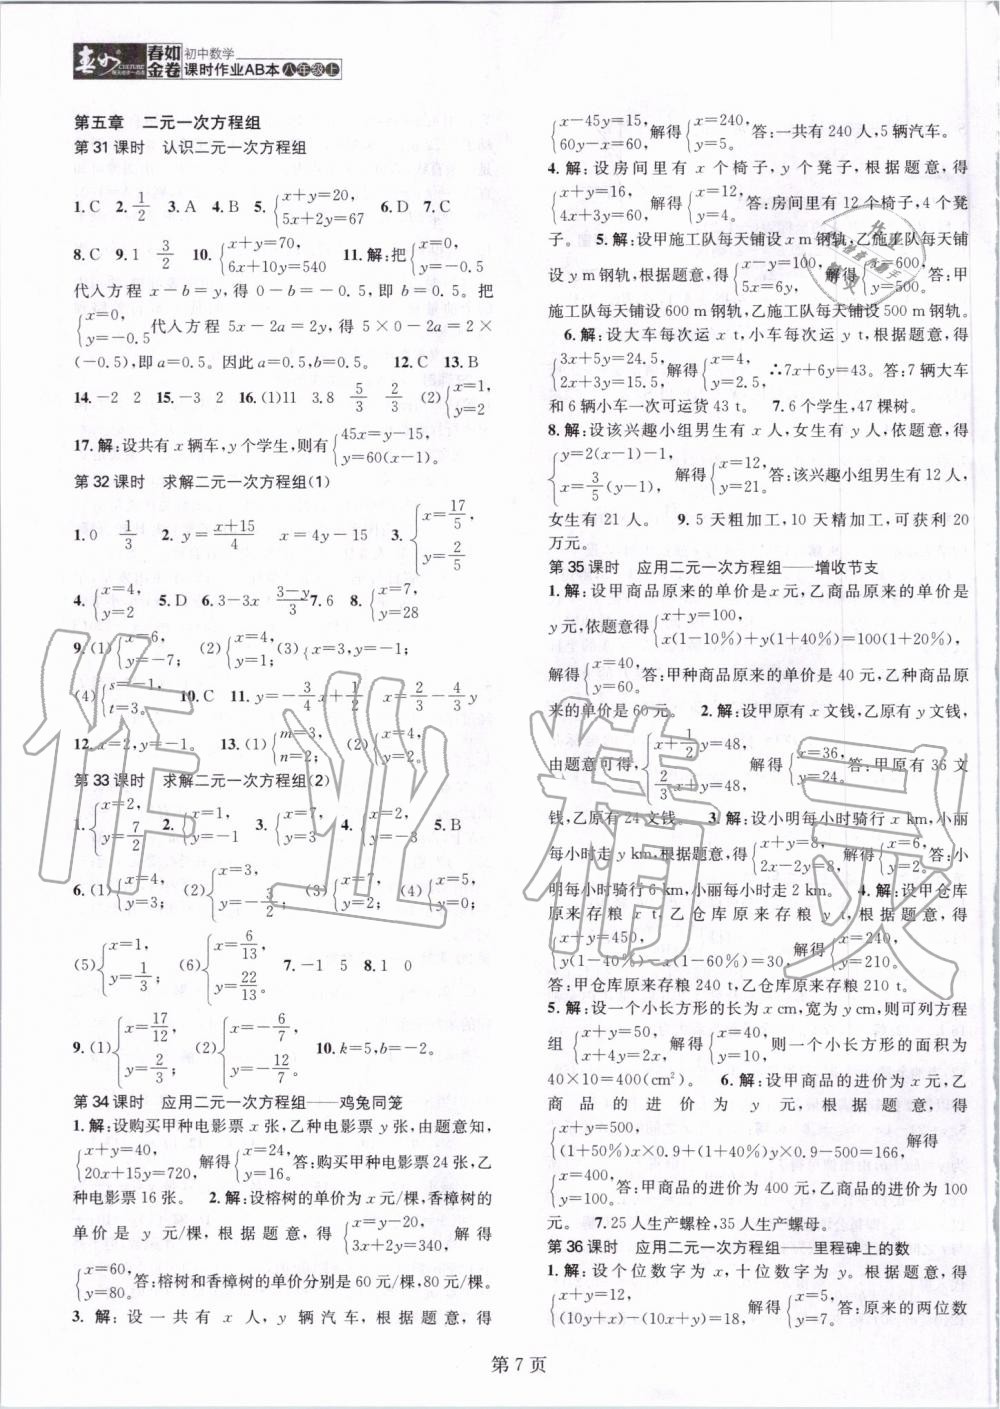 春如金卷 初中数学
课时作业AB本 八年级上
第五章 二元一次方程组
第31课时 认识二元一次方程组
1.C 2.1/2 3.A 4.B 5.{x+y=20, 5x+2y=67 6.D 7.C
8.C 9.1 3/2 10.{x+y=70, 6x+10y=540 11.解:把{x=0, y=-0.5
代入方程 x-b=y,得 0-b=-0.5,即 b=0.5.把
{x=0, y=-0.5代入方程 5x-2a=2y,得 5×0-2a=2×
(-0.5),即 a=0.5.因此 a=0.5,b=0.5. 12.C 13.B
14.-2 2 15.-3 2 16.(1)11 3.8 5/3 2/3 (2){x=1, y=2
17.解:设共有 x 辆车,y 个学生,则有{45x=y-15, y=60(x-1)
第32课时 求解二元一次方程组(1)
1.0 1/3 2.y=(x+15)/4 x=4y-15 3.{x=17/5, y=2/5
4.{x=4, y=2 5.D 6.3-3x (3-y)/3 7.6 8.{x=7, y=28
9.(1){x=6, y=-7; (2){x=4, y=1; (3){x=3,y=-1;
(4){s=-1, t=3. 10.C 11.y=-3/4x+1/2 x=2/3-4/3y
12.x=2,y=-1. 13.(1){m=3, n=2; (2){x=4, y=2.
第33课时 求解二元一次方程组(2)
1.{x=2, y=7/2 2.{x=2, y=-1 3.{x=7, y=3 4.{x=2, y=-3 5.B
6.(1){x=4, y=3; (2){x=3, y=-3/2; (3){x=7, y=3; (4){x=5, y=0;
(5){x=1, y=1/3; (6){x=6/13, y=22/13. 7.-1 5 8.1 0
9.(1){x=17/12, y=2/3; (2){x=-6/7, y=12/7. 10.k=5,b=-2.
第34课时 应用二元一次方程组——鸡兔同笼
1.解:设购买甲种电影票 x 张,乙种电影票 y 张,由题意知,
{x+y=40, 20x+15y=720,解得{x=24, y=16.答:购买甲种电影票24张,乙
种电影票16张. 2.解:设榕树的单价为 x 元/棵,香樟树的
单价是 y 元/棵,根据题意,得{x=y-20, 3x+2y=340,解得
{x=60, y=80.答:榕树和香樟树的单价分别是 60 元/棵,80 元/棵.
3.解:设一共有 x 人,y 辆汽车,根据题意,得
{x-45y=15, 60y-x=60.解得{x=240, y=5.答:一共有 240 人,5 辆汽车.
4.解:设房间里有 x 个椅子,y 个凳子,根据题意,得
{x+y=16, 4x+3y=60.解得{x=12, y=4.答:房间里有 12 个椅子,4 个凳
子. 5.解:设甲施工队每天铺设 x m 钢轨,乙施工队每天铺
设 y m 钢轨,根据题意,得{x-y=100, 5x=6y,解得{x=600, y=500.答:甲
施工队每天铺设 600 m 钢轨,乙施工队每天铺设 500 m 钢轨.
6.解:设大车每次运 x t,小车每次运 y t,根据题意,得
{3x+5y=24.5, 2x+3y=15.5,解得{x=4, y=2.5,∴7x+6y=43.答:7 辆大车
和 6 辆小车一次可运货 43 t. 7.6 个学生,47 棵树.
8.解:设该兴趣小组男生有 x 人,女生有 y 人,依题意,得
{y=2(x-1)-1, x=3/5(y-1),解得{x=12, y=21.答:该兴趣小组男生有 12 人,
女生有 21 人. 9.5 天粗加工,10 天精加工,可获利 20
万元.
第35课时 应用二元一次方程组——增收节支
1.解:设甲商品原来的单价是x元,乙商品原来的单价是
y元,依题意得{x+y=100, x(1-10%)+y(1+40%)=100(1+20%),
解得{x=40, y=60.答:甲种商品原来的单价是 40 元,乙种商品原
来的单价是60元. 2.解:设甲原有 x 文钱,乙原有y文钱,
由题意可得,{x+1/2y=48, 2/3x+y=48,解得{x=36, y=24.答:甲原有 36 文
钱,乙原有 24 文钱. 3.解:设小明每小时骑行 x km,小丽
每小时走 y km,根据题意,得{x+y=8, 2x-2y=8,解得{x=6, y=2.答:小
明每小时骑行 6 km,小丽每小时走2 km. 4.解:设甲仓库
原来存粮 x t,乙仓库原来存粮 y t,根据题意,得
{x+y=450, y(1-40%)-x(1-60%)=30,解得{x=240, y=210.
答:甲仓库原来存粮 240 t,乙仓库原来存粮 210 t.
5.解:设一个小长方形的长为x cm,宽为y cm,则可列方程
组{x+y=50, x+4y=2x,解得{x=40, y=10,则一个小长方形的面积为
40×10=400(cm²). 6.解:设甲商品的进价为 x 元,乙
商品的进价为 y 元,根据题意,得
{x+y=500, (1+50%)x×0.9+(1+40%)y×0.9-500=166,解得
{x=400, y=100.答:甲商品的进价为 400 元,乙商品的进价为 100
元. 7.25 人生产螺栓,35 人生产螺母.
第36课时 应用二元一次方程组——里程碑上的数
1.解:设个位数字为 x,十位数字为 y.根据题意,得
{x+y=12, (10y+x)-(10x+y)=18,解得{x=5, y=7.答:原来的两位数
第 7 页
作业精灵